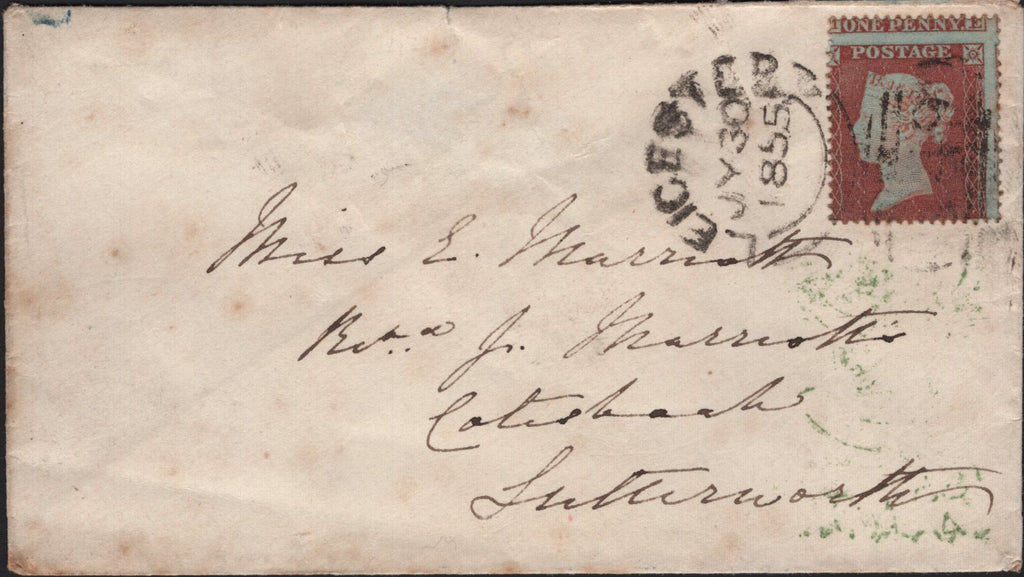 ONE PENNY
POSTAGE
LEICESTER
JY 30
1855
Miss E. Marriott
Revd. J. Marriotts
Cotesbach
Lutterworth